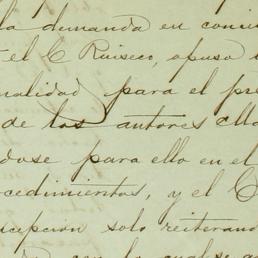 la demanda en
el C Ruiseco, opuso
para el
de los autores
dose para ello en el
cedimientos, y el C
cepcion solo reiterand